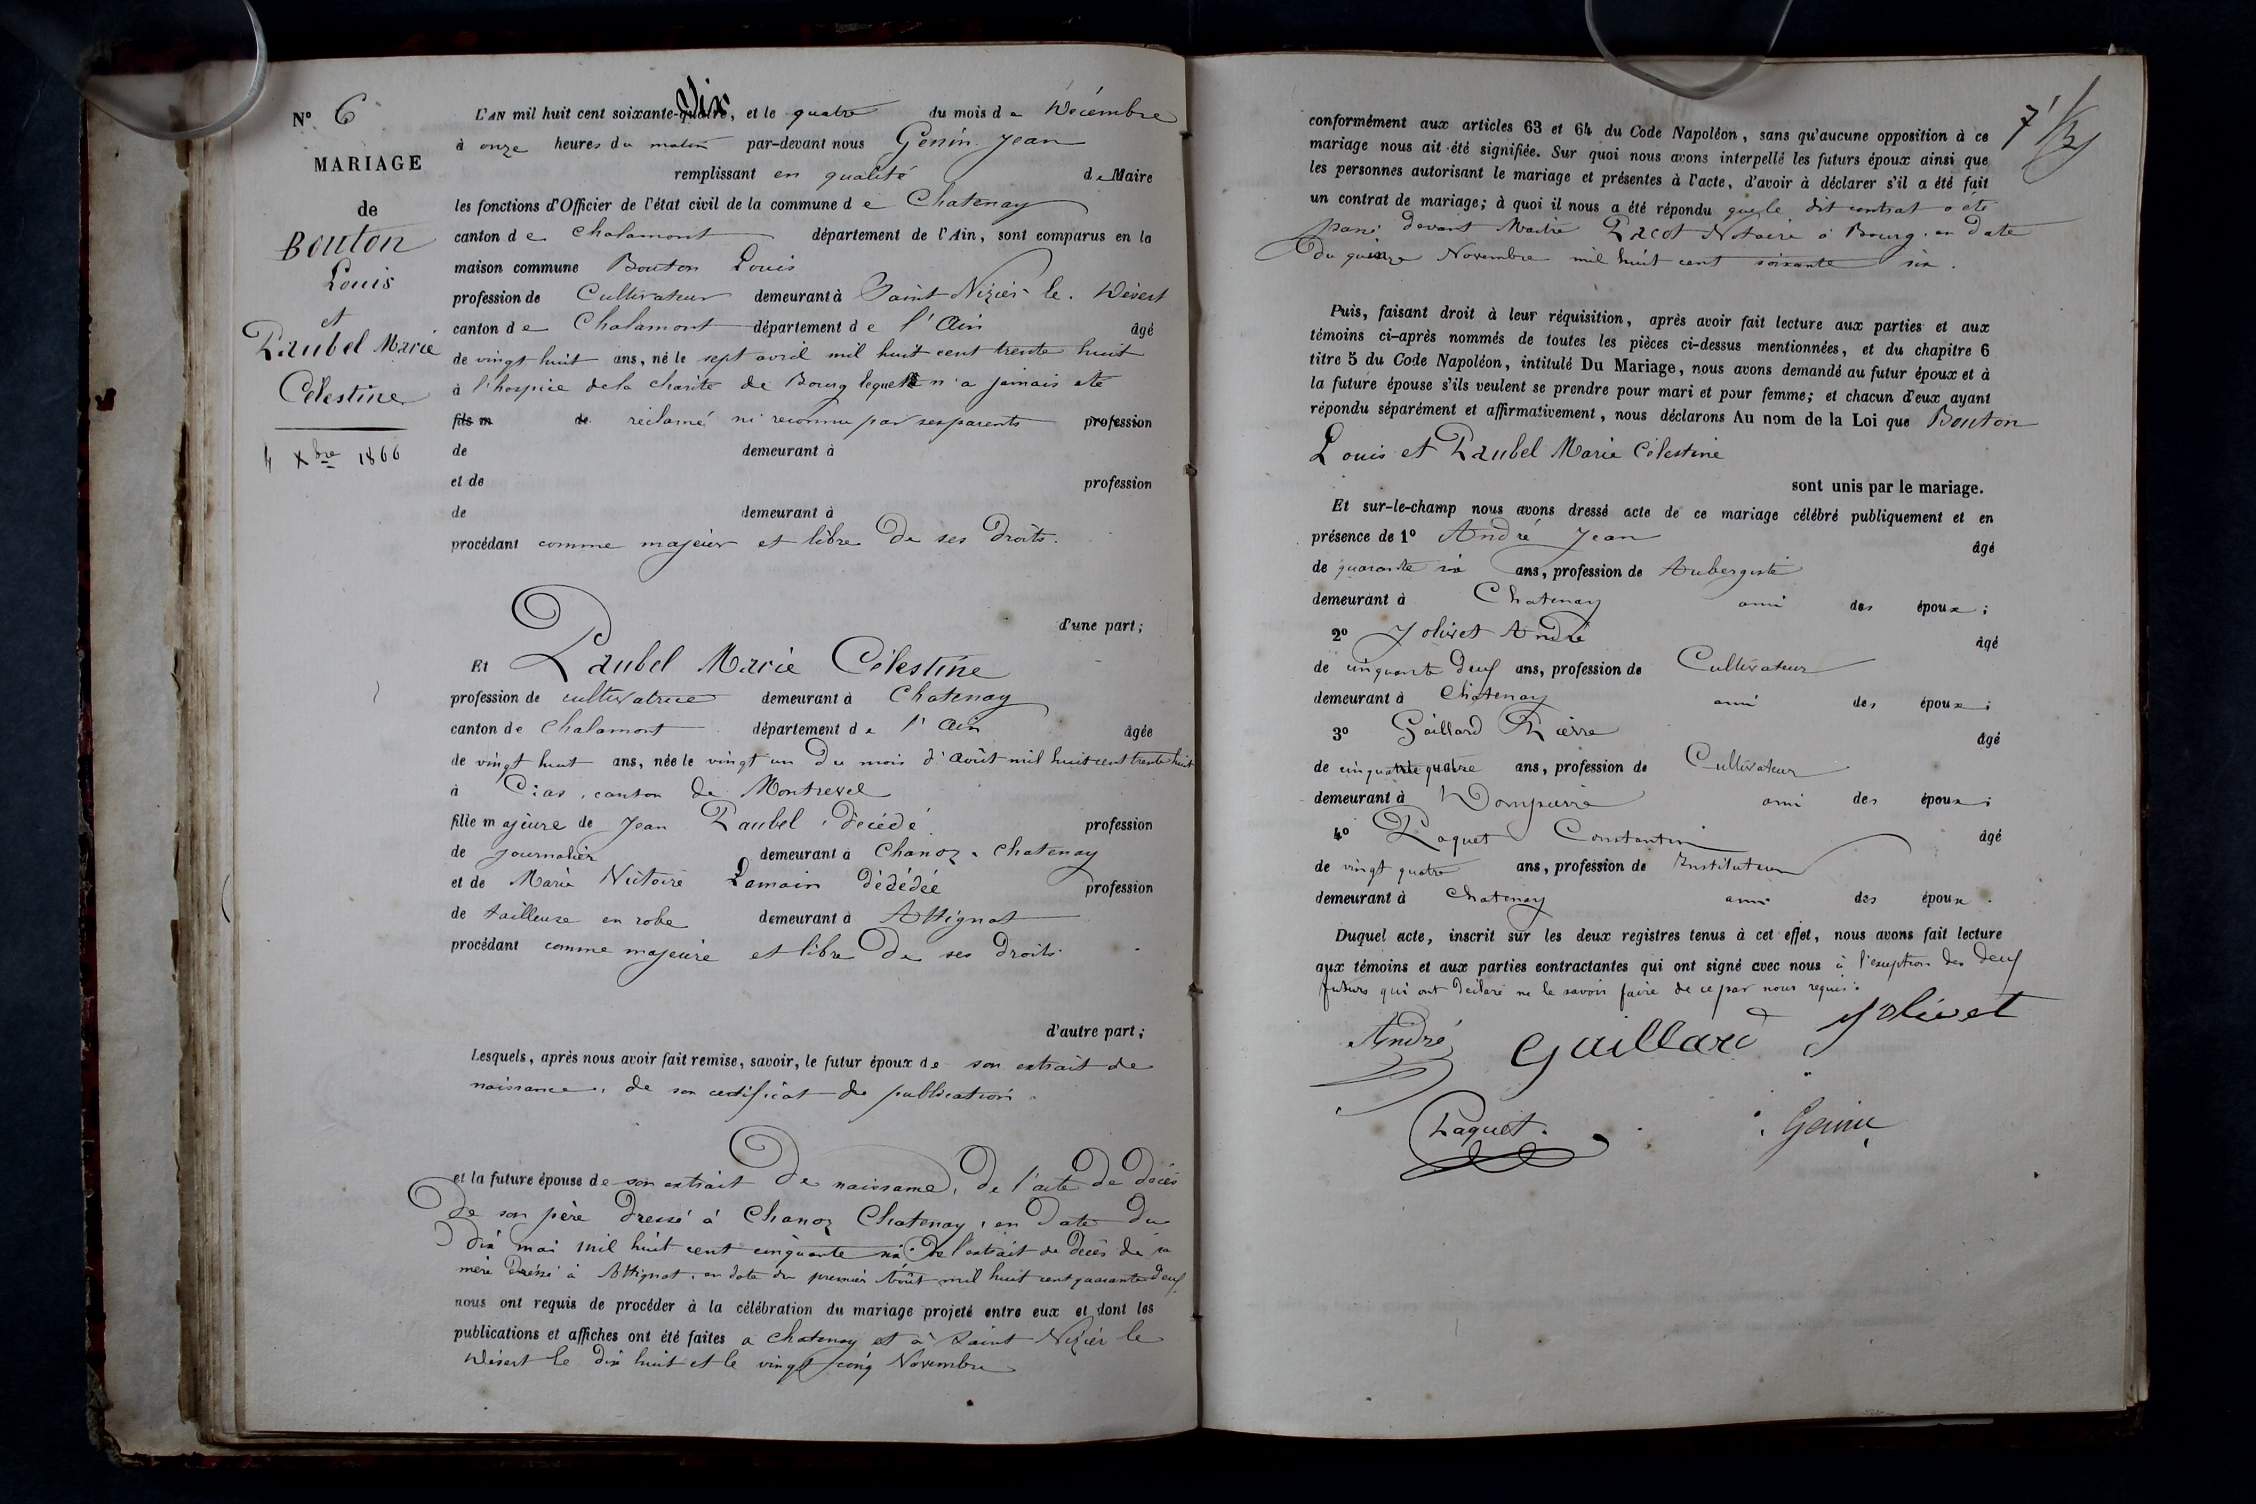 N° 6
MARIAGE
de
Bouton
Louis
et
Paubel Marie
Célestine
4 Xbre 1866
L'AN mil huit cent soixante-six, et le quatre du mois de Décembre
à onze heures du matin par-devant nous Genin Jean
remplissant en qualité de Maire
les fonctions d'Officier de l'état civil de la commune de Chatenay
canton de Chalamont département de l'Ain, sont comparus en la
maison commune Bouton Louis
profession de Cultivateur demeurant à Saint Nizier le Désert
canton de Chalamont département de l'Ain âgé
de vingt huit ans, né le sept avril mil huit cent trente huit
à l'hospice de la charité de Bourg lequel n'a jamais été
fils m de réclamé ni reconnu par ses parents profession
de demeurant à
et de profession
de demeurant à
procédant comme majeur et libre de ses droits.
d'une part;
Et Paubel Marie Célestine
profession de cultivatrice demeurant à Chatenay
canton de Chalamont département de l'Ain âgée
de vingt huit ans, née le vingt un du mois d'août mil huit cent trente huit
à Cras, canton de Montrevel
fille majeure de Jean Paubel, décédé profession
de journalier demeurant à Chanoz-Chatenay
et de Marie Victoire Lamain dédédée profession
de tailleuse en robe demeurant à Attignat
procédant comme majeure et libre de ses droits.
d'autre part;
Lesquels, après nous avoir fait remise, savoir, le futur époux de son extrait de
naissance, de son certificat de publication.
et la future épouse de son extrait de naissance, de l'acte de décès
de son père dressé à Chanoz Chatenay, en date du
dix mai mil huit cent cinquante six. De l'extrait de décès de sa
mère dressé à Attignat, en date du premier Août mil huit cent quarante deux
nous ont requis de procéder à la célébration du mariage projeté entre eux et dont les
publications et affiches ont été faites a chatenay et à Saint Nizier le
Désert le dix huit et le vingt cinq Novembre
conformément aux articles 63 et 64 du Code Napoléon, sans qu'aucune opposition à ce
mariage nous ait été signifiée. Sur quoi nous avons interpellé les futurs époux ainsi que
les personnes autorisant le mariage et présentes à l'acte, d'avoir à déclarer s'il a été fait
un contrat de mariage; à quoi il nous a été répondu que le dit contrat a été
passé devant Maitre Pacot Notaire à Bourg, en date
du quinze Novembre mil huit cent soixante six.
Puis, faisant droit à leur réquisition, après avoir fait lecture aux parties et aux
témoins ci-après nommés de toutes les pièces ci-dessus mentionnées, et du chapitre 6
titre 5 du Code Napoléon, intitulé Du Mariage, nous avons demandé au futur époux et à
la future épouse s'ils veulent se prendre pour mari et pour femme; et chacun d'eux ayant
répondu séparément et affirmativement, nous déclarons Au nom de la Loi que Bouton
Louis et Paubel Marie Célestine
sont unis par le mariage.
Et sur-le-champ nous avons dressé acte de ce mariage célébré publiquement et en
présence de 1° André Jean âgé
de quarante six ans, profession de Aubergiste
demeurant à Chatenay ami des époux;
2° Jolivet André âgé
de cinquante deux ans, profession de Cultivateur
demeurant à Chatenay ami des époux;
3° Gaillard Pierre âgé
de cinquante quatre ans, profession de Cultivateur
demeurant à Dompierre ami des époux;
4° Paquet Constantin âgé
de vingt quatre ans, profession de Instituteur
demeurant à Chatenay ami des époux.
Duquel acte, inscrit sur les deux registres tenus à cet effet, nous avons fait lecture
aux témoins et aux parties contractantes qui ont signé avec nous à l'exeption des deux
futurs qui ont déclaré ne le savoir faire de ce par nous requis.
André Gaillard Jolivet
Paquet. Genin